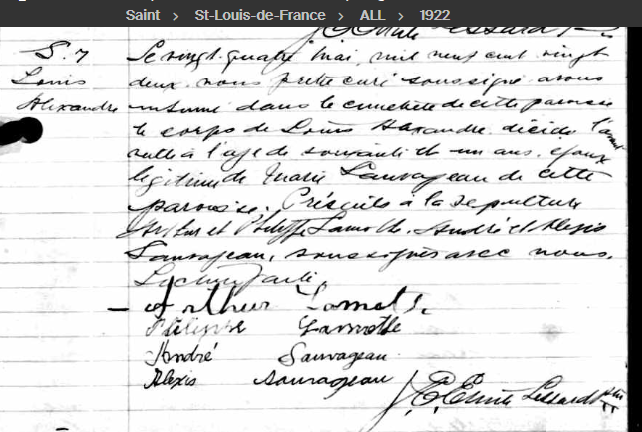 Saint > St-Louis-de-France > ALL > 1922
S. 7
Louis
Alexandre
Le vingt-quatre mai, mil neuf cent vingt
deux, nous prêtre curé soussigné avons
inhumé dans le cimetière de cette paroisse
le corps de Louis Alexandre décédé l'avant
veille à l'age de soixante et un ans, époux
légitime de Marie Sauvageau de cette
paroisse. Présents à la sépulture
Arthur et Philippe Lamothe, André et Alexis
Sauvageau, soussignés avec nous.
Lecture faite
Arthur Lamothe
Philippe Lamothe
André Sauvageau
Alexis Sauvageau
Lessard ptre